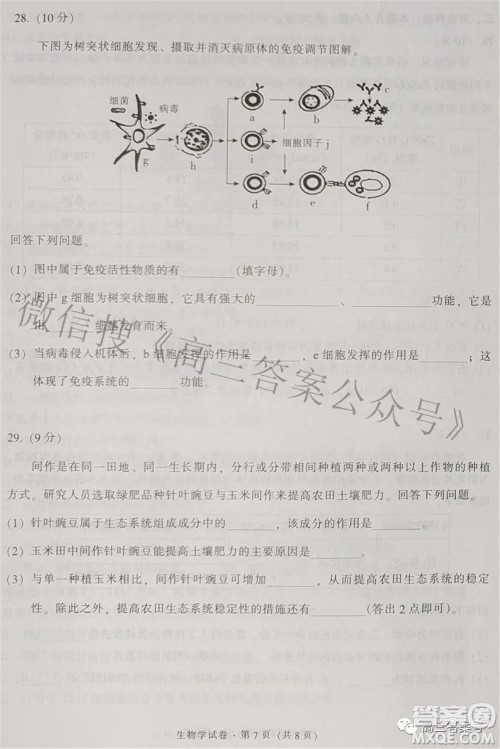 28. (10 分)
下图为树突状细胞发现、摄取并消灭病原体的免疫调节图解。
细菌 病毒
g h a b c
i 细胞因子j
d e f
回答下列问题。
(1) 图中属于免疫活性物质的有________(填字母)。
(2) 图中 g 细胞为树突状细胞，它具有强大的________、________功能，它是
由________细胞发育而来。
(3) 当病毒侵入机体后，b 细胞发挥的作用是________，e 细胞发挥的作用是________；这
体现了免疫系统的________功能。
29. (9 分)
间作是在同一田地、同一生长期内，分行或分带相间种植两种或两种以上作物的种植
方式。研究人员选取绿肥品种针叶豌豆与玉米间作来提高农田土壤肥力。回答下列问题。
(1) 针叶豌豆属于生态系统组成成分中的________，该成分的作用是________。
(2) 玉米田中间作针叶豌豆能提高土壤肥力的主要原因是________。
(3) 与单一种植玉米相比，间作针叶豌豆可增加________，从而提高农田生态系统的稳定
性。除此之外，提高农田生态系统稳定性的措施还有________(答出 2 点即可)。
微信搜《高三答案公众号》
生物学试卷·第 7 页 (共 8 页)
答案圈